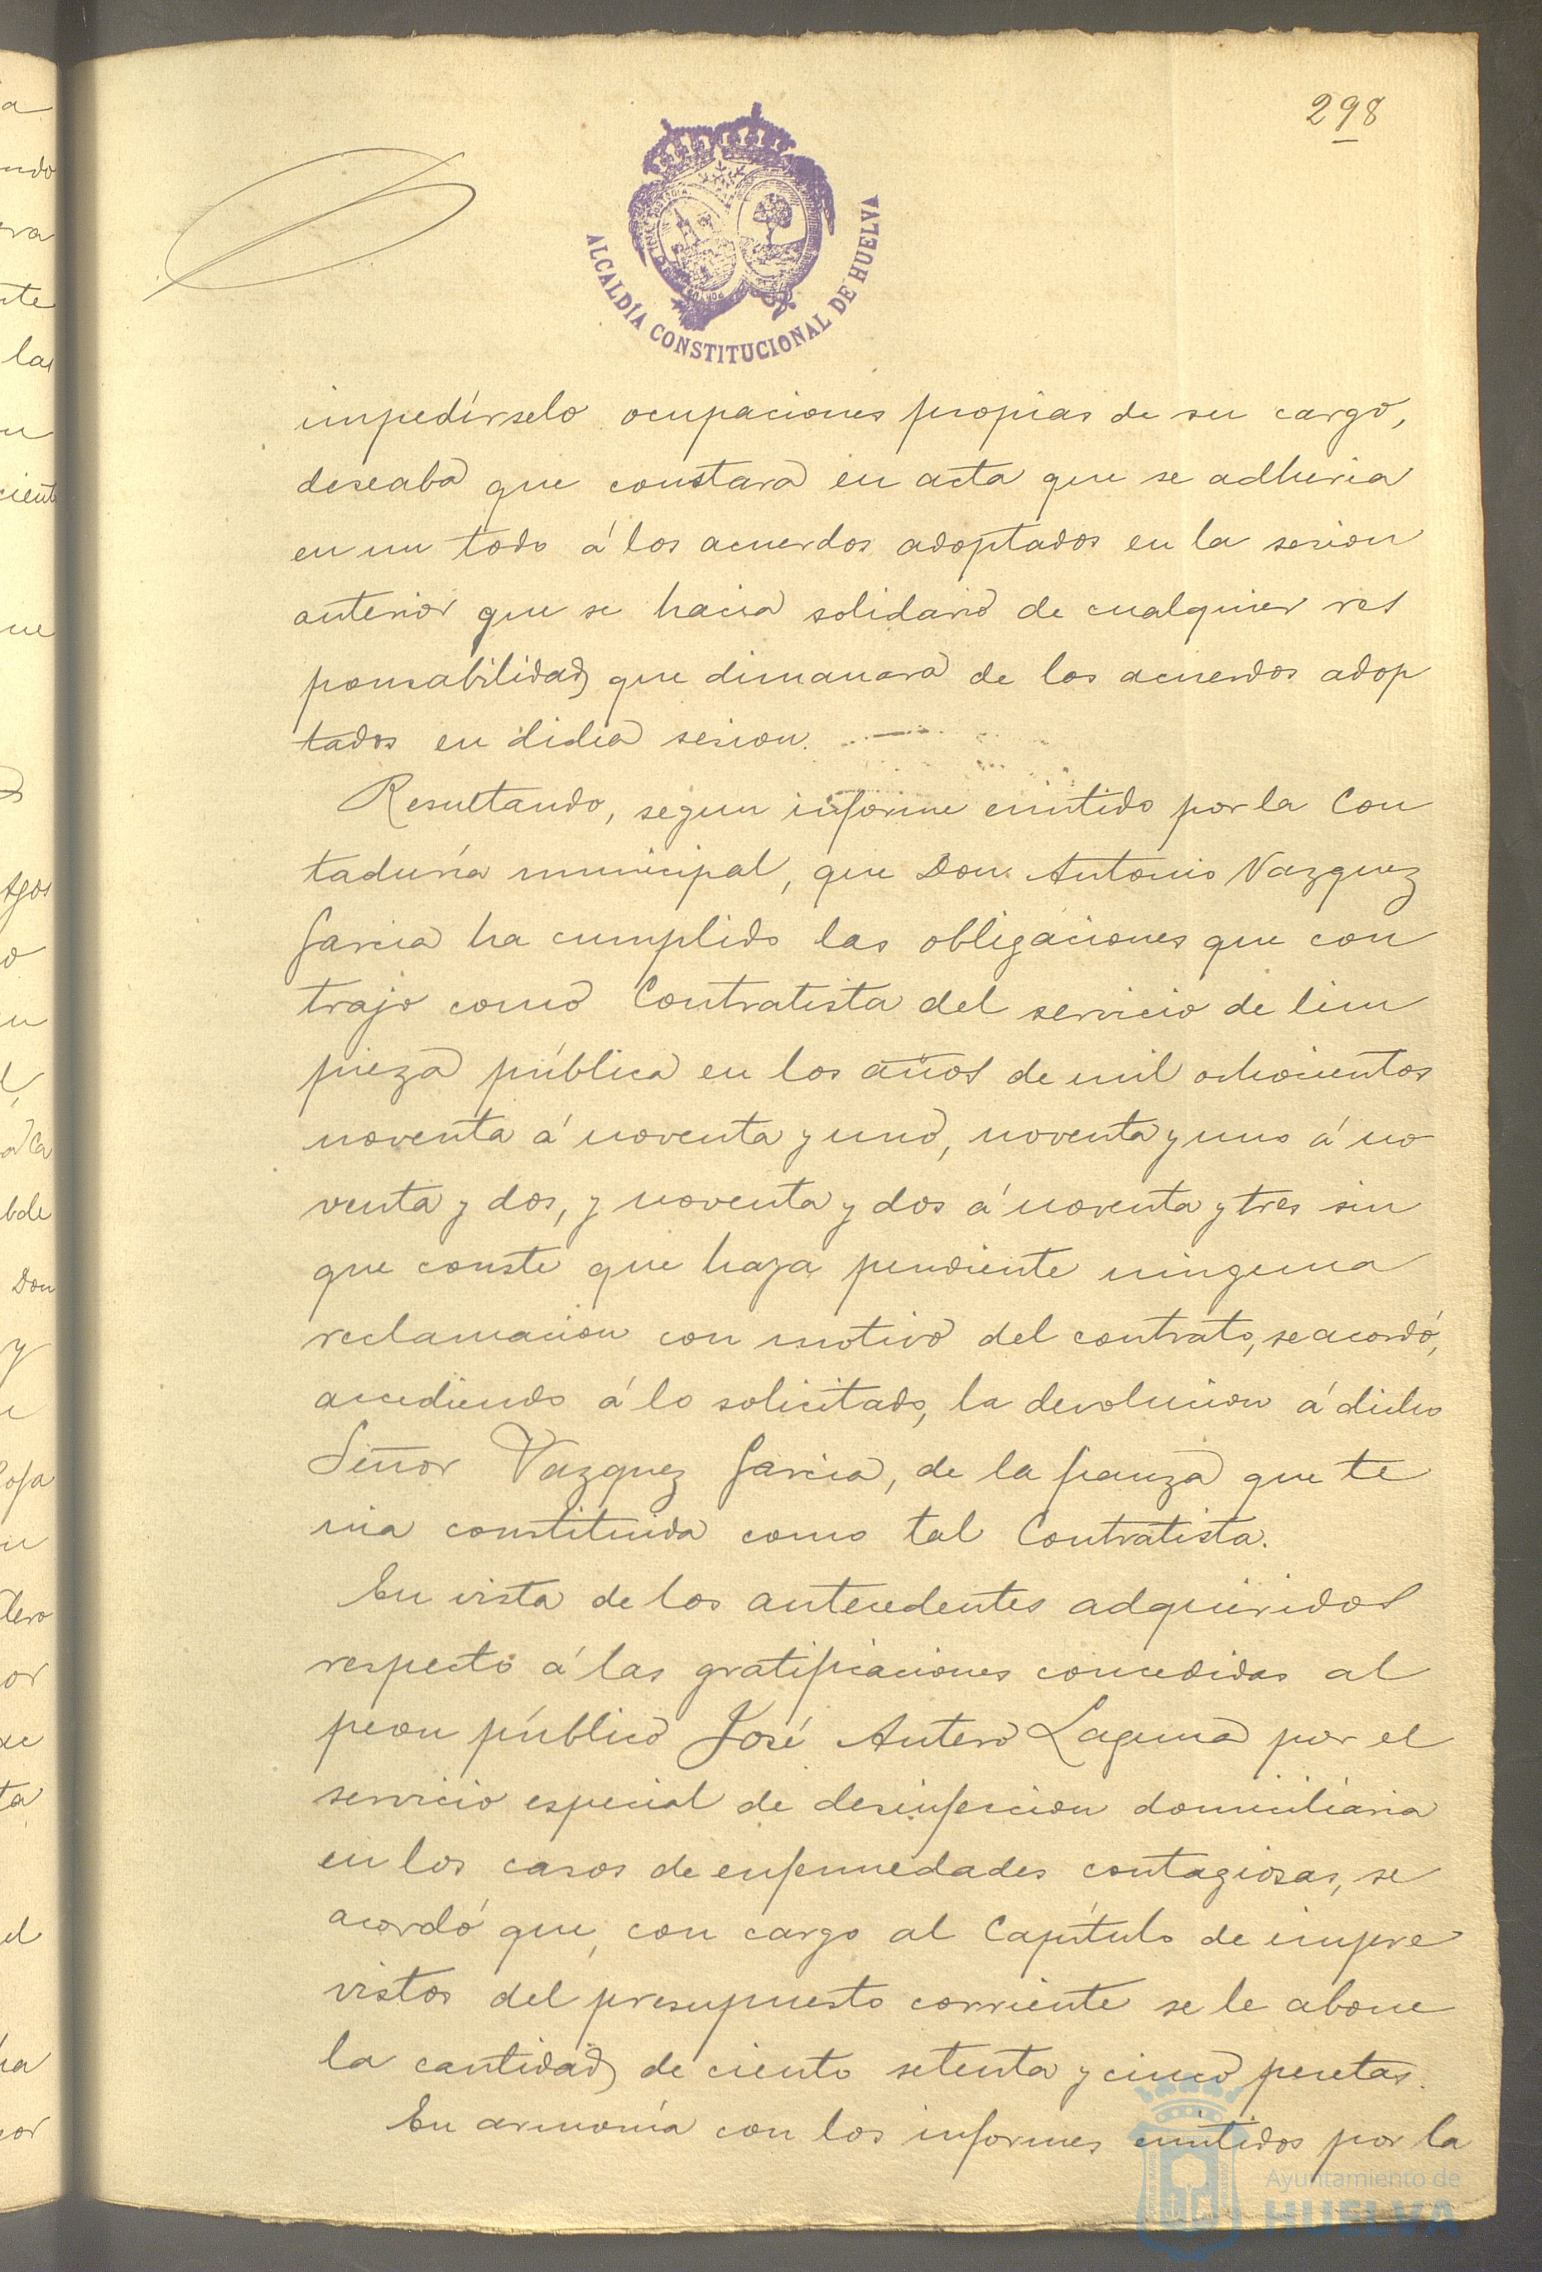 298
ALCALDÍA CONSTITUCIONAL DE HUELVA
impedírselo ocupaciones propias de su cargo,
deseaba que constara en acta que se adheria
en un todo á los acuerdos adoptados en la sesion
anterior que se hacia solidario de cualquier res
ponsabilidad que dimanara de los acuerdos adop
tados en dicha sesion.
Resultando, segun informe emitido por la Con
taduría municipal, que Don Antonio Vazquez
Garcia ha cumplido las obligaciones que con
trajo como Contratista del servicio de lim
pieza pública en los años de mil ochocientos
noventa á noventa y uno, noventa y uno á no
venta y dos, y noventa y dos á noventa y tres sin
que conste que haya pendiente ninguna
reclamacion con motivo del contrato, se acordó,
accediendo á lo solicitado, la devolucion á dicho
Señor Vazquez Garcia, de la fianza que te
nia constituida como tal Contratista.
En vista de los antecedentes adquiridos
respecto á las gratificaciones concedidas al
peon público José Antero Laguna por el
servicio especial de desinfeccion domiciliaria
en los casos de enfermedades contagiosas, se
acordó que, con cargo al Capítulo de impre
vistos del presupuesto corriente se le abone
la cantidad de ciento setenta y cinco pesetas.
En armonía con los informes emitidos por la
Ayuntamiento de
HUELVA